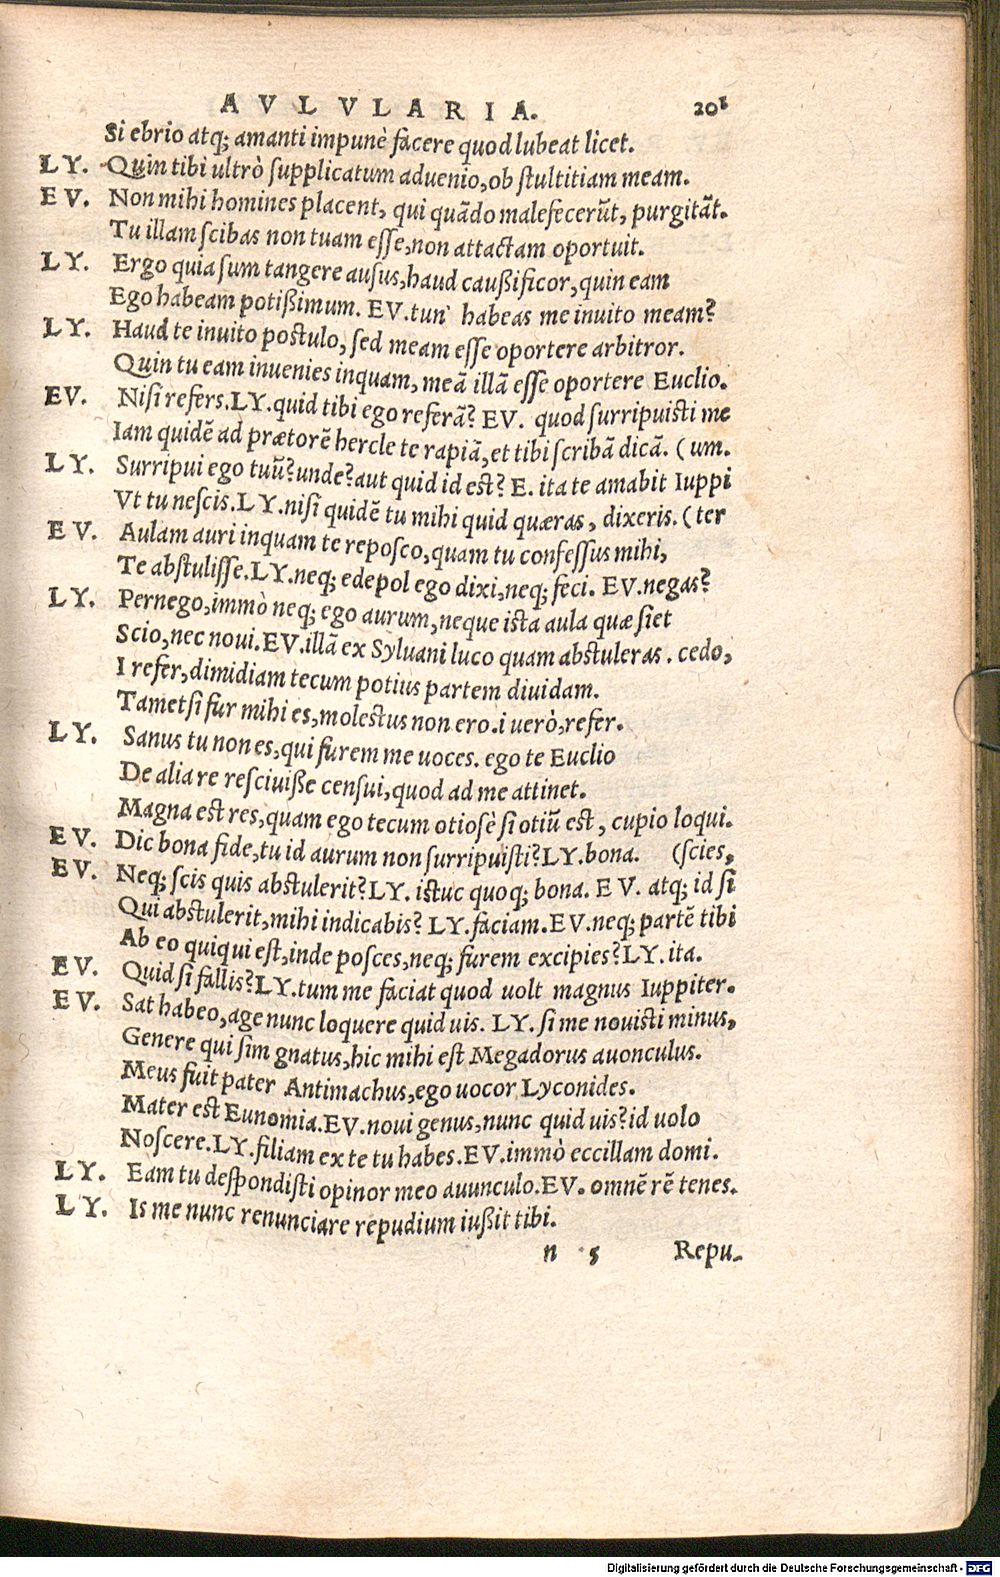 AVLVLARIA. 201
Si ebrio atq; amanti impunè facere quod lubeat licet.
LY. Quin tibi ultrò supplicatum aduenio, ob stultitiam meam.
EV. Non mihi homines placent, qui quãdo malefecerũt, purgitãt.
Tu illam scibas non tuam esse, non attactam oportuit.
LY. Ergo quia sum tangere ausus, haud caußificor, quin eam
Ego habeam potißimum. EV. tun' habeas me inuito meam?
LY. Haud te inuito postulo, sed meam esse oportere arbitror.
Quin tu eam inuenies inquam, meã illã esse oportere Euclio.
EV. Nisi refers. LY. quid tibi ego referã? EV. quod surripuisti me
Iam quidẽ ad prætorẽ hercle te rapiã, et tibi scribã dicã. (um.
LY. Surripui ego tuũ? unde? aut quid id est? E. ita te amabit Iuppi
Vt tu nescis. LY. nisi quidẽ tu mihi quid quæras, dixeris. (ter
EV. Aulam auri inquam te reposco, quam tu confessus mihi,
Te abstulisse. LY. neq; edepol ego dixi, neq; feci. EV. negas?
LY. Pernego, immò neq; ego aurum, neque ista aula quæ siet
Scio, nec noui. EV. illã ex Syluani luco quam abstuleras. cedo,
I refer, dimidiam tecum potius partem diuidam.
Tametsi fur mihi es, molestus non ero. i uerò, refer.
LY. Sanus tu non es, qui furem me uoces. ego te Euclio
De alia re resciuiße censui, quod ad me attinet.
Magna est res, quam ego tecum otiosè si otiũ est, cupio loqui.
EV. Dic bona fide, tu id aurum non surripuisti? LY. bona. (scies,
EV. Neq; scis quis abstulerit? LY. istuc quoq; bona. EV. atq; id si
Qui abstulerit, mihi indicabis? LY. faciam. EV. neq; partẽ tibi
Ab eo quiqui est, inde posces, neq; furem excipies? LY. ita.
EV. Quid si fallis? LY. tum me faciat quod uolt magnus Iuppiter.
EV. Sat habeo, age nunc loquere quid uis. LY. si me nouisti minus,
Genere qui sim gnatus, hic mihi est Megadorus auonculus.
Meus fuit pater Antimachus, ego uocor Lyconides.
Mater est Eunomia. EV. noui genus, nunc quid uis? id uolo
Noscere. LY. filiam ex te tu habes. EV. immò eccillam domi.
LY. Eam tu despondisti opinor meo auunculo. EV. omnẽ rẽ tenes.
LY. Is me nunc renunciare repudium iußit tibi.
n 5 Repu-
Digitalisierung gefördert durch die Deutsche Forschungsgemeinschaft - DFG